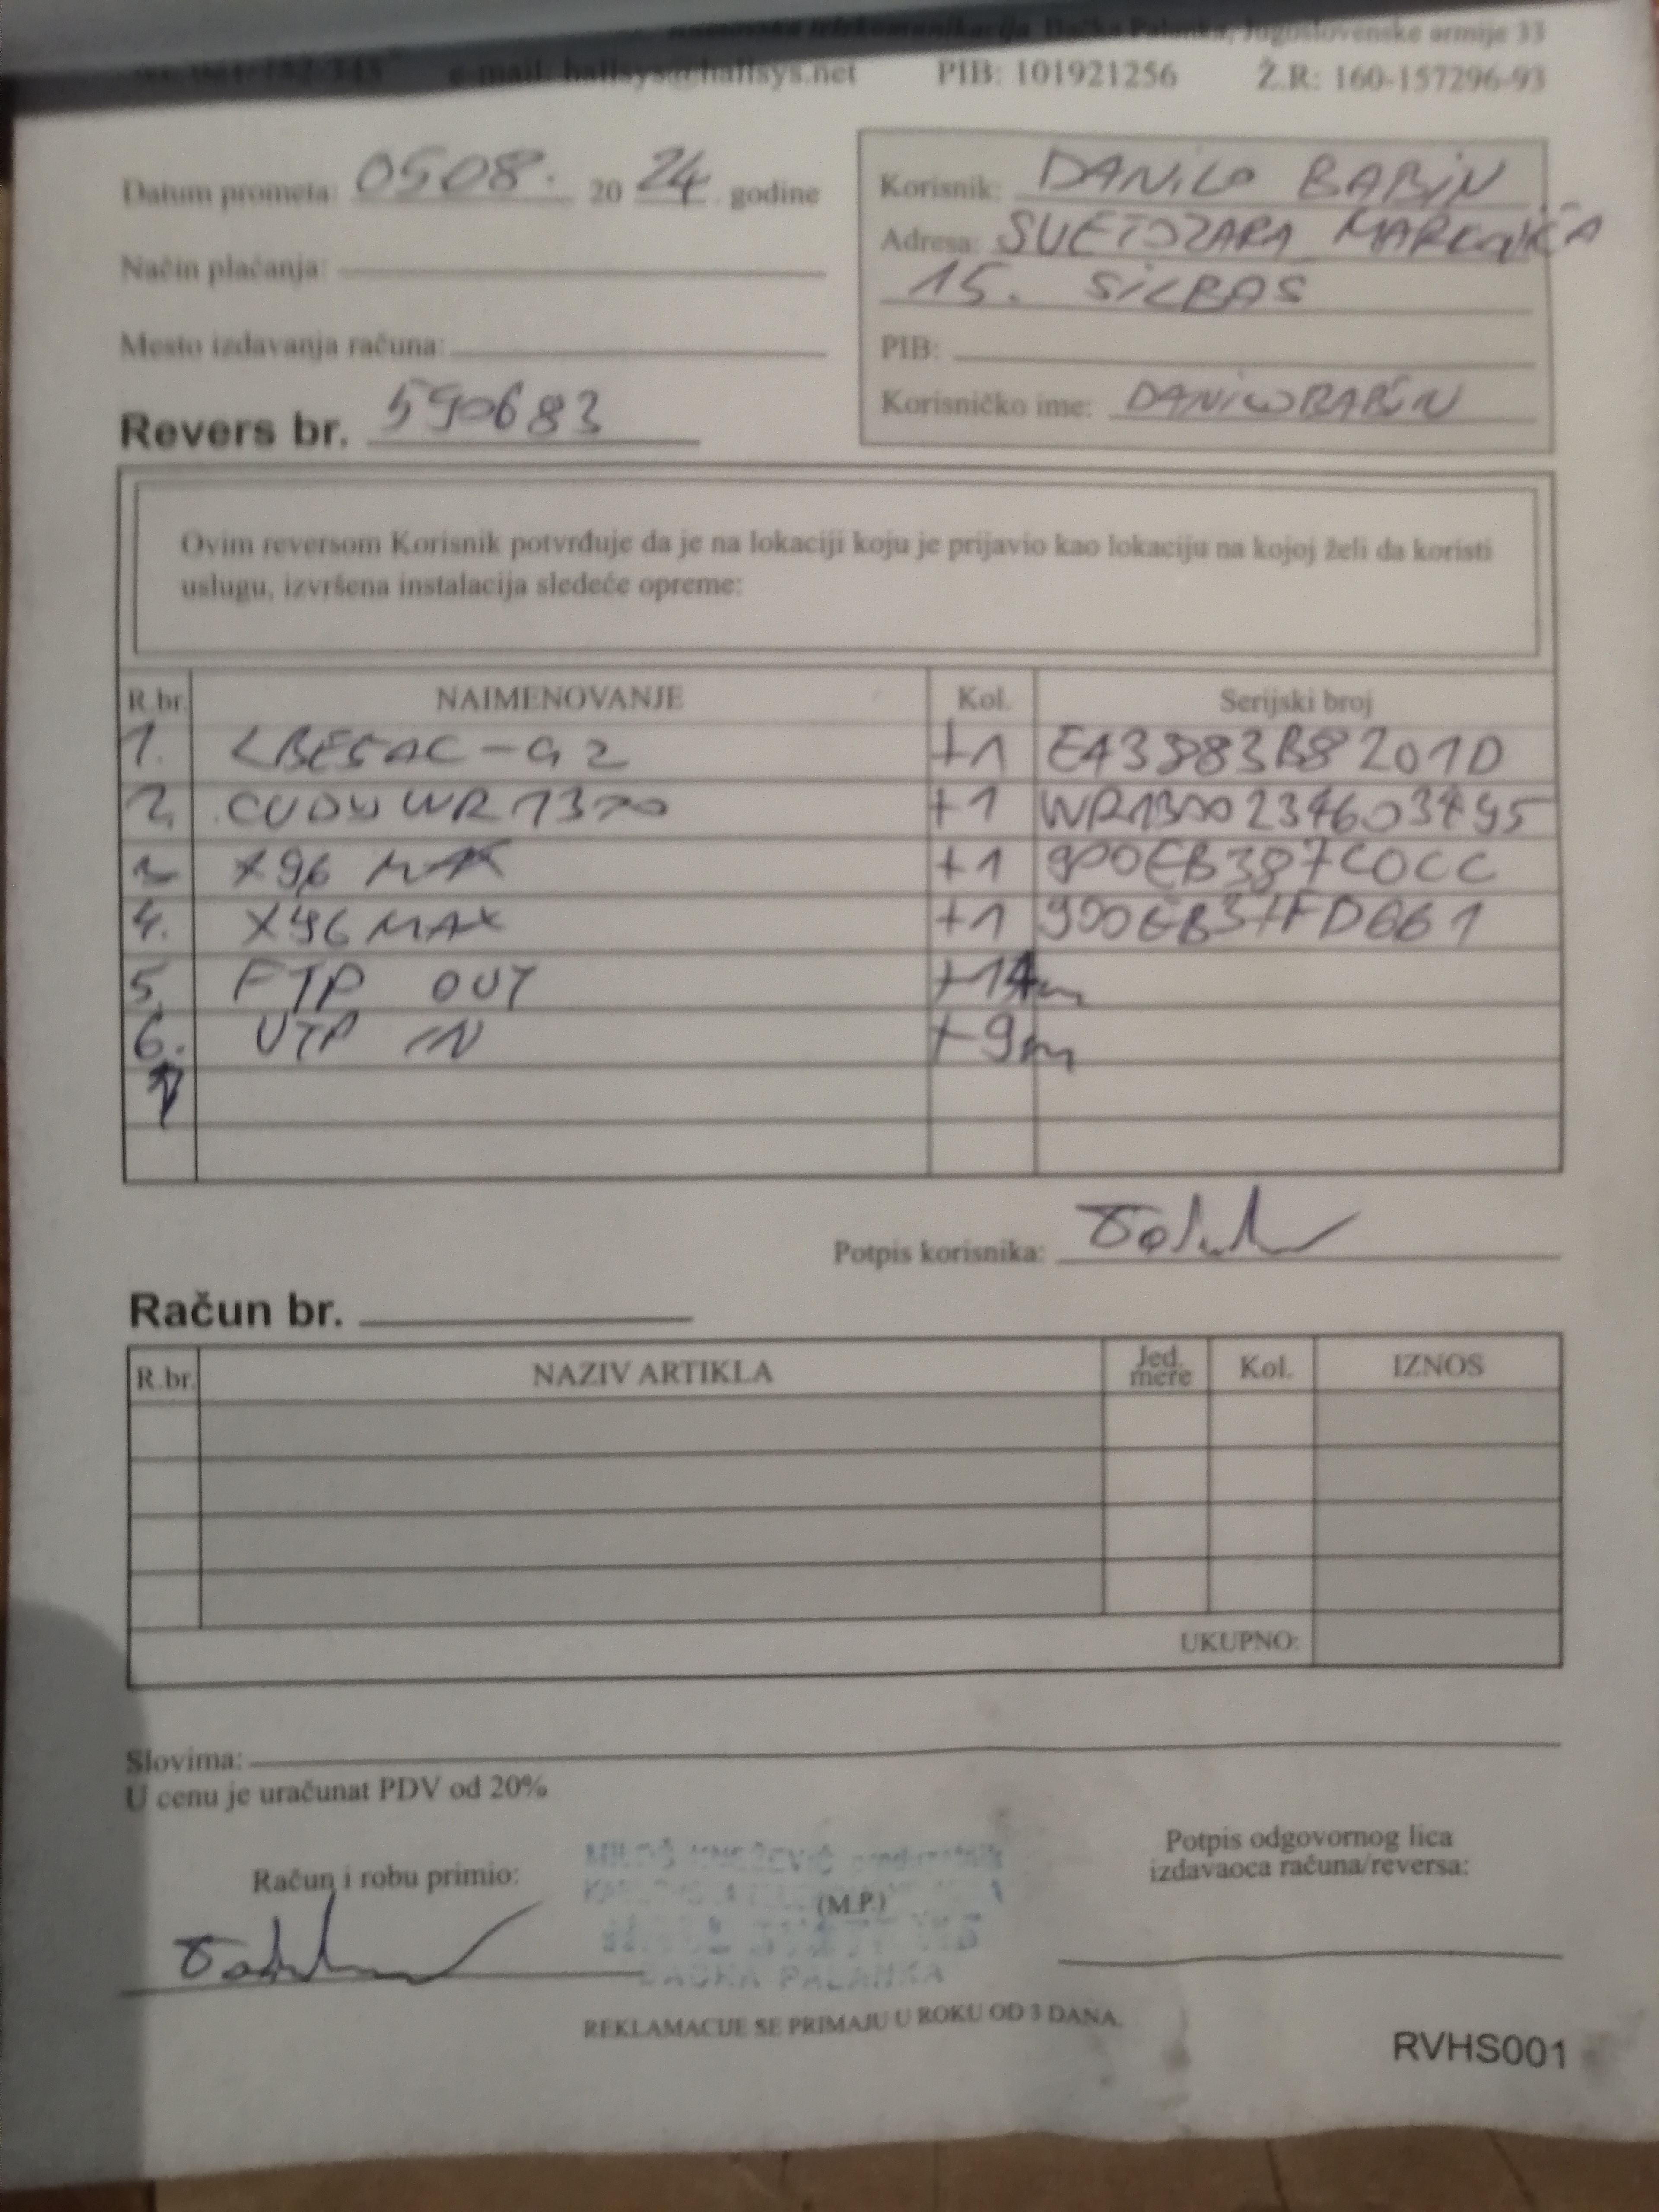 telekomunikacija, Bačka Palanka, Jugoslovenske armije 33
e-mail: hallsys@hallsys.net PIB: 101921256 Ž.R: 160-157296-93
Datum prometa: 0508. 20 24 godine
Korisnik: DANILO BABIN
Adresa: SVETOZARA MARKOVIĆA
15. SILBAŠ
Način plaćanja:
Mesto izdavanja računa:
PIB:
Korisničko ime: DANILOBABIN
Revers br. 590683
Ovim reversom Korisnik potvrđuje da je na lokaciji koju je prijavio kao lokaciju na kojoj želi da koristi
uslugu, izvršena instalacija sledeće opreme:
R.br. NAIMENOVANJE Kol. Serijski broj
1. LBE5AC-G2 +1 E43883B8201D
2. CUDY WR1300 +1 WR1300234603495
3. X96 MAX +1 900EB387C0CC
4. X96 MAX +1 900EB37FD661
5. FTP OUT +14m
6. UTP IN +9m
Potpis korisnika:
Račun br.
R.br. NAZIV ARTIKLA Jed. mere Kol. IZNOS
UKUPNO:
Slovima:
U cenu je uračunat PDV od 20%
Račun i robu primio:
(M.P.)
Potpis odgovornog lica
izdavaoca računa/reversa:
BAČKA PALANKA
REKLAMACIJE SE PRIMAJU U ROKU OD 3 DANA.
RVHS001